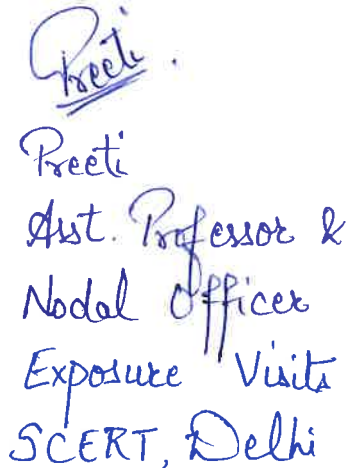 Preeti.
Preeti
Asst. Professor &
Nodal Officer
Exposure Visits
SCERT, Delhi